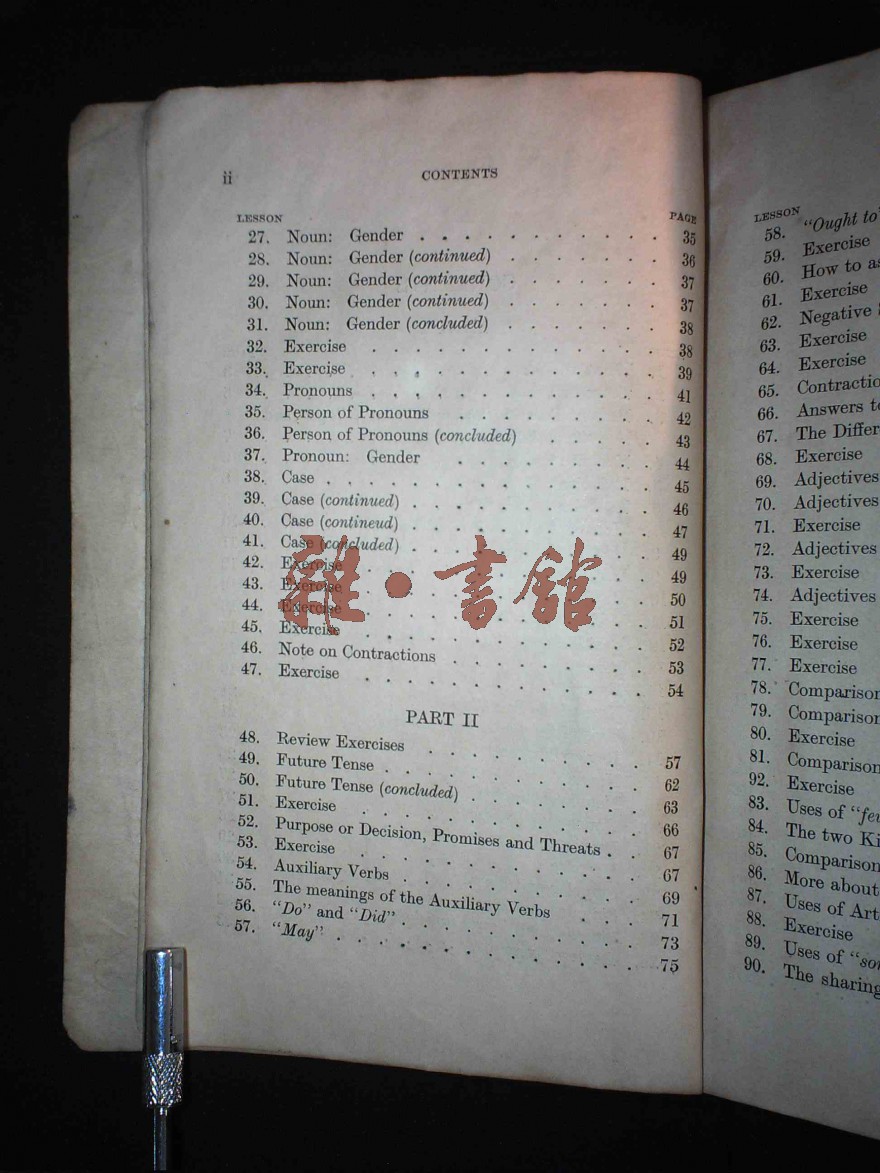 ii CONTENTS
LESSON PAGE
27. Noun: Gender . . . . . . . . . . . 35
28. Noun: Gender (continued) . . . . . . . 36
29. Noun: Gender (continued) . . . . . . . 37
30. Noun: Gender (continued) . . . . . . . 37
31. Noun: Gender (concluded) . . . . . . . 38
32. Exercise . . . . . . . . . . . . . 38
33. Exercise . . . . . . . . . . . . . 39
34. Pronouns . . . . . . . . . . . . . 41
35. Person of Pronouns . . . . . . . . . 42
36. Person of Pronouns (concluded) . . . . . 43
37. Pronoun: Gender . . . . . . . . . 44
38. Case . . . . . . . . . . . . . . 45
39. Case (continued) . . . . . . . . . . . 46
40. Case (contineud) . . . . . . . . . . . 47
41. Case (concluded) . . . . . . . . . . . 49
42. Exercise . . . . . . . . . . . . . 49
43. Exercise . . . . . . . . . . . . . 50
44. Exercise . . . . . . . . . . . . . 51
45. Exercise . . . . . . . . . . . . . 52
46. Note on Contractions . . . . . . . . . 53
47. Exercise . . . . . . . . . . . . . 54
PART II
48. Review Exercises . . . . . . . . . . 57
49. Future Tense . . . . . . . . . . . . 62
50. Future Tense (concluded) . . . . . . . . 63
51. Exercise . . . . . . . . . . . . . 66
52. Purpose or Decision, Promises and Threats . . 67
53. Exercise . . . . . . . . . . . . . 67
54. Auxiliary Verbs . . . . . . . . . . . 69
55. The meanings of the Auxiliary Verbs . . . 71
56. "Do" and "Did" . . . . . . . . . . . 73
57. "May" . . . . . . . . . . . . . . 75
雜•書館
LESSON
58. "Ought to"
59. Exercise
60. How to
61. Exercise
62. Negative
63. Exercise
64. Exercise
65.
66. Answers
67. The
68. Exercise
69. Adjectives
70. Adjectives
71. Exercise
72. Adjectives
73. Exercise
74. Adjectives
75. Exercise
76. Exercise
77. Exercise
78. Comparison
79. Comparison
80. Exercise
81. Comparison
92. Exercise
83. Uses of
84. The two
85. Comparison
86. More about
87. Uses of
88. Exercise
89. Uses of
90. The sharing